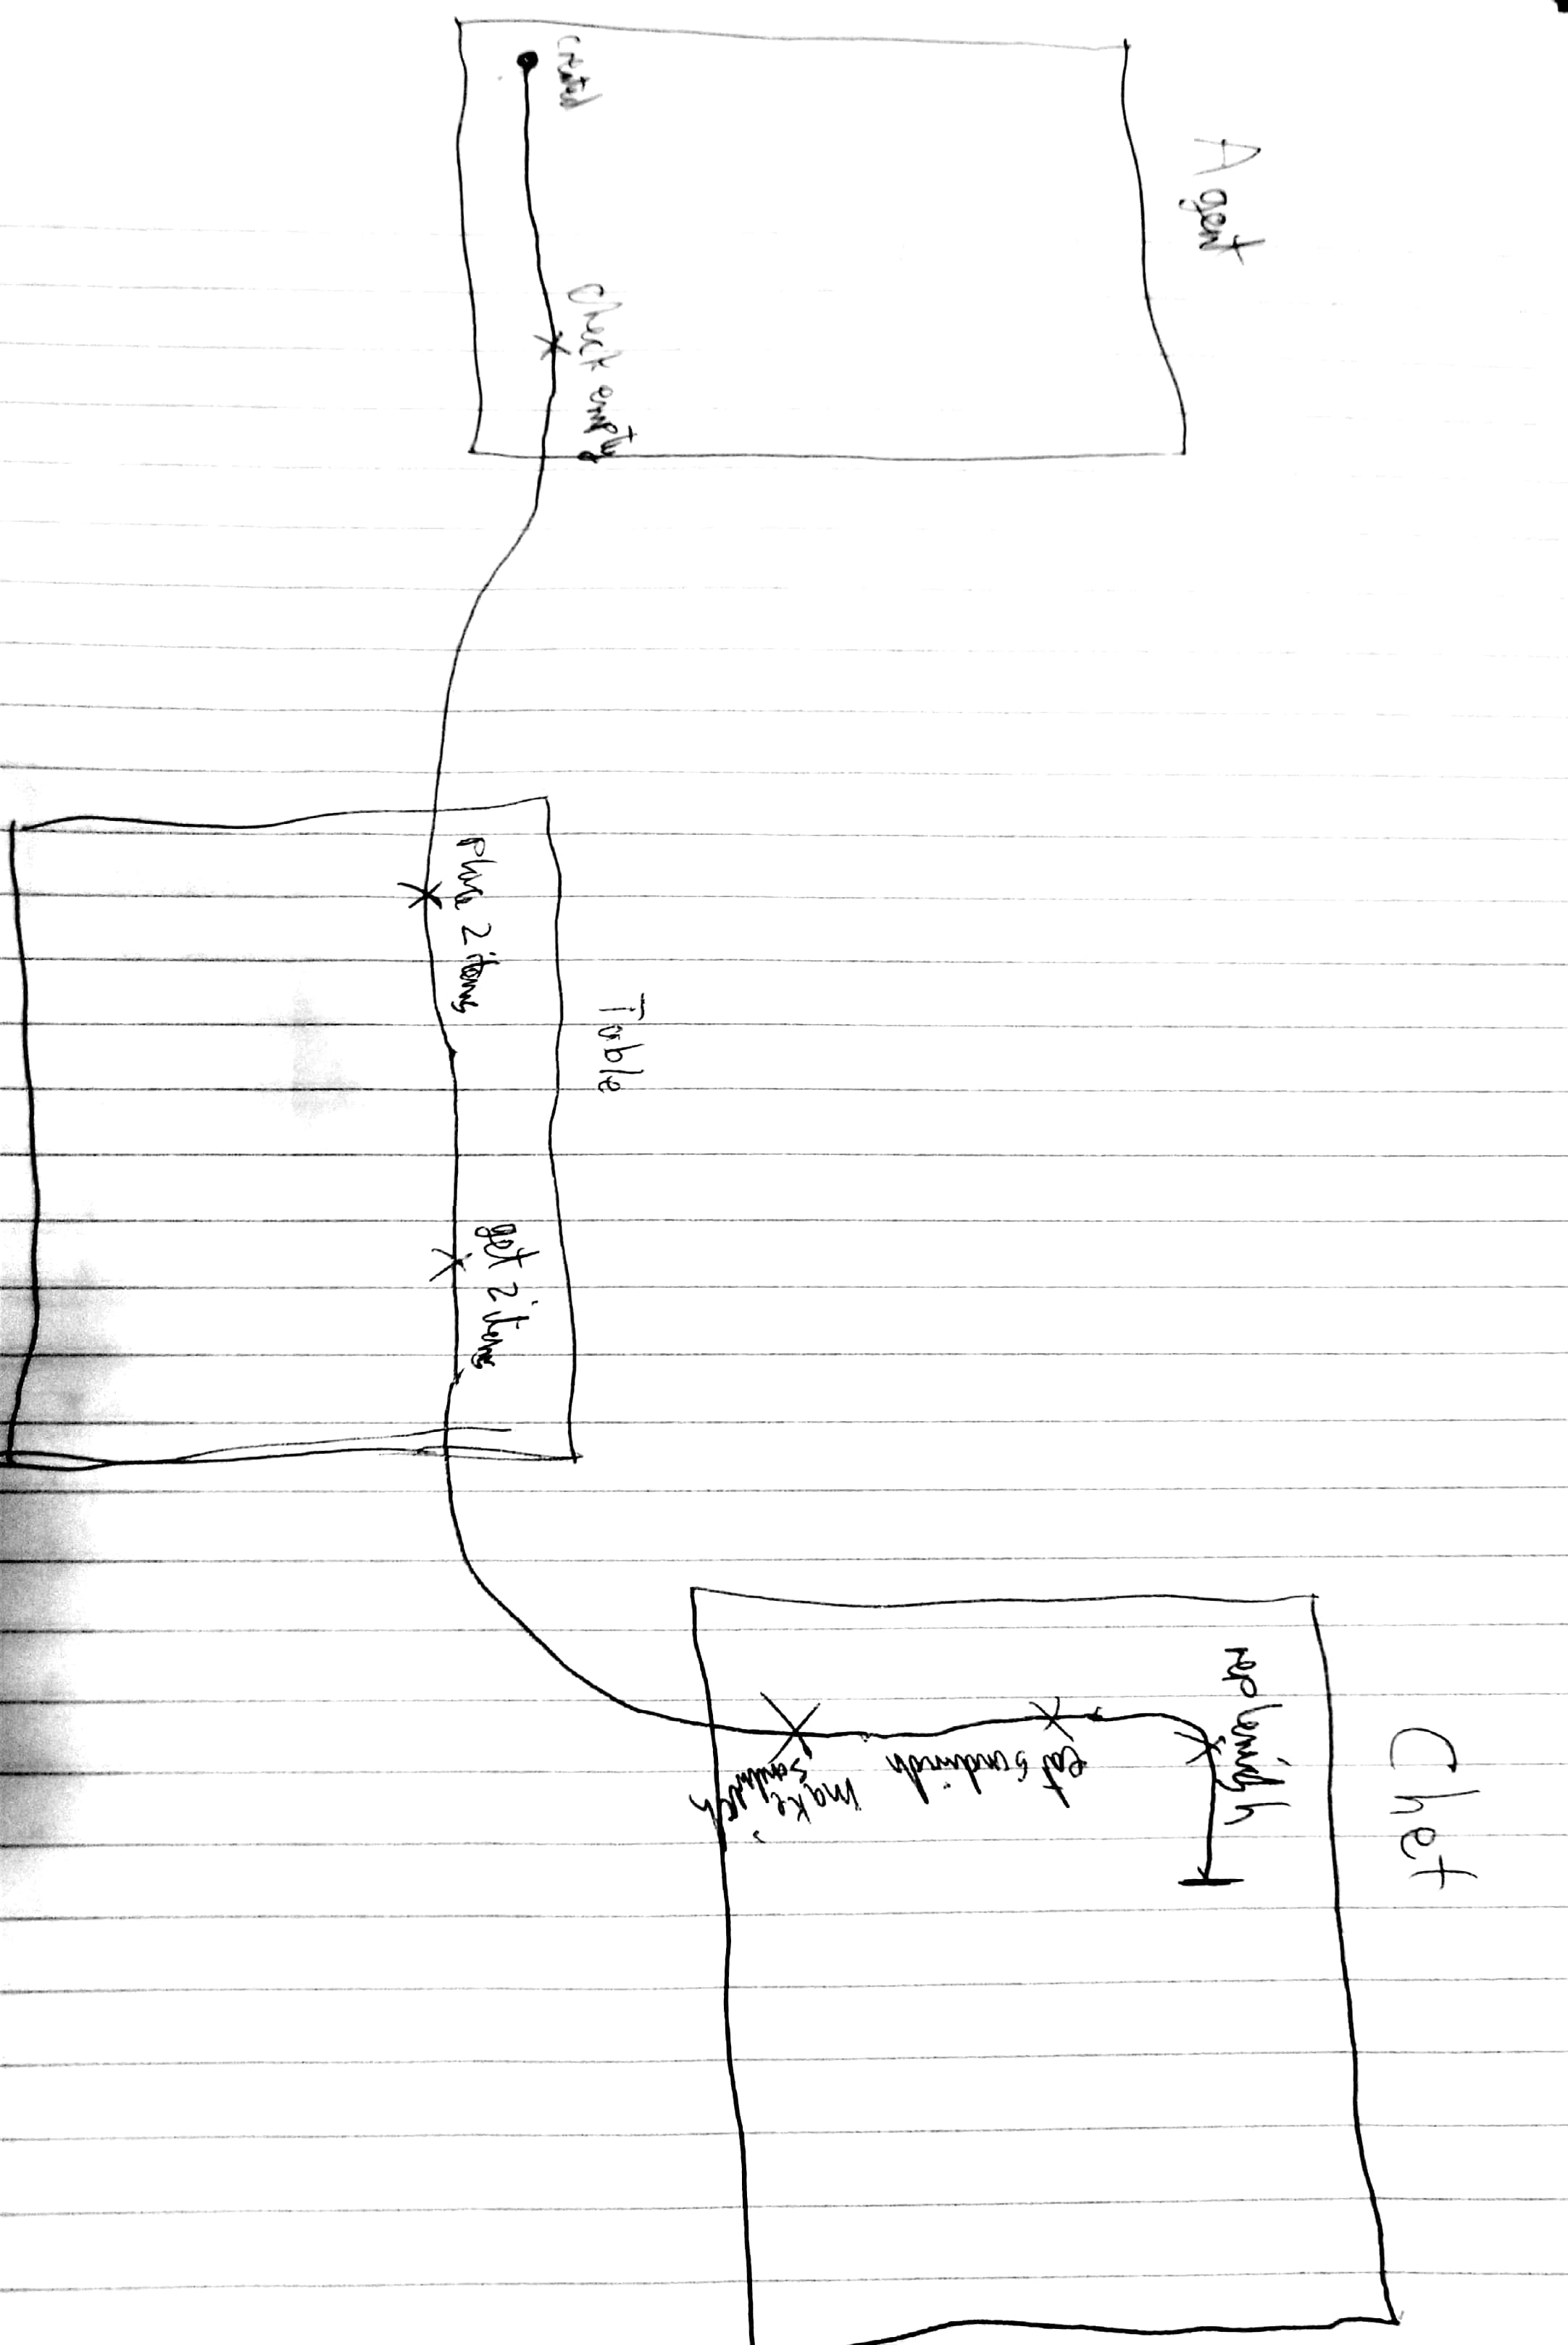 Agent
created
check empty
Table
place 2 items
get 2 items
Chef
make
sandwich
eat sandwich
replenish